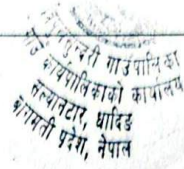 गाउँपालिका
गाउँ कार्यपालिकाको कार्यालय
सल्यानटार, धादिङ
बागमती प्रदेश, नेपाल